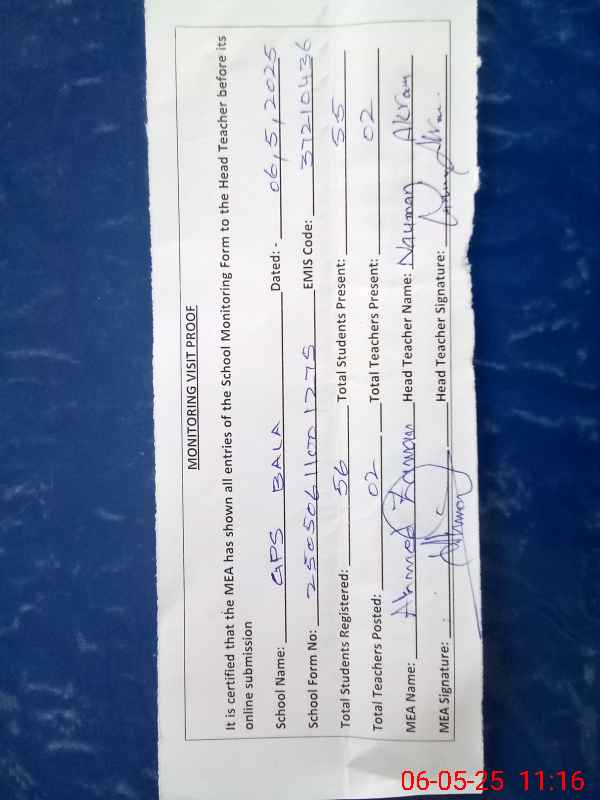 MONITORING VISIT PROOF
It is certified that the MEA has shown all entries of the School Monitoring Form to the Head Teacher before its
online submission
School Name: GPS BALA Dated: - 06,5,2025
School Form No: 250506110701275 EMIS Code: 37210436
Total Students Registered: 56 Total Students Present: 55
Total Teachers Posted: 02 Total Teachers Present: 02
MEA Name: Ahmed Zaman Head Teacher Name: Nauman Akram
MEA Signature: Head Teacher Signature:
06-05-25 11:16